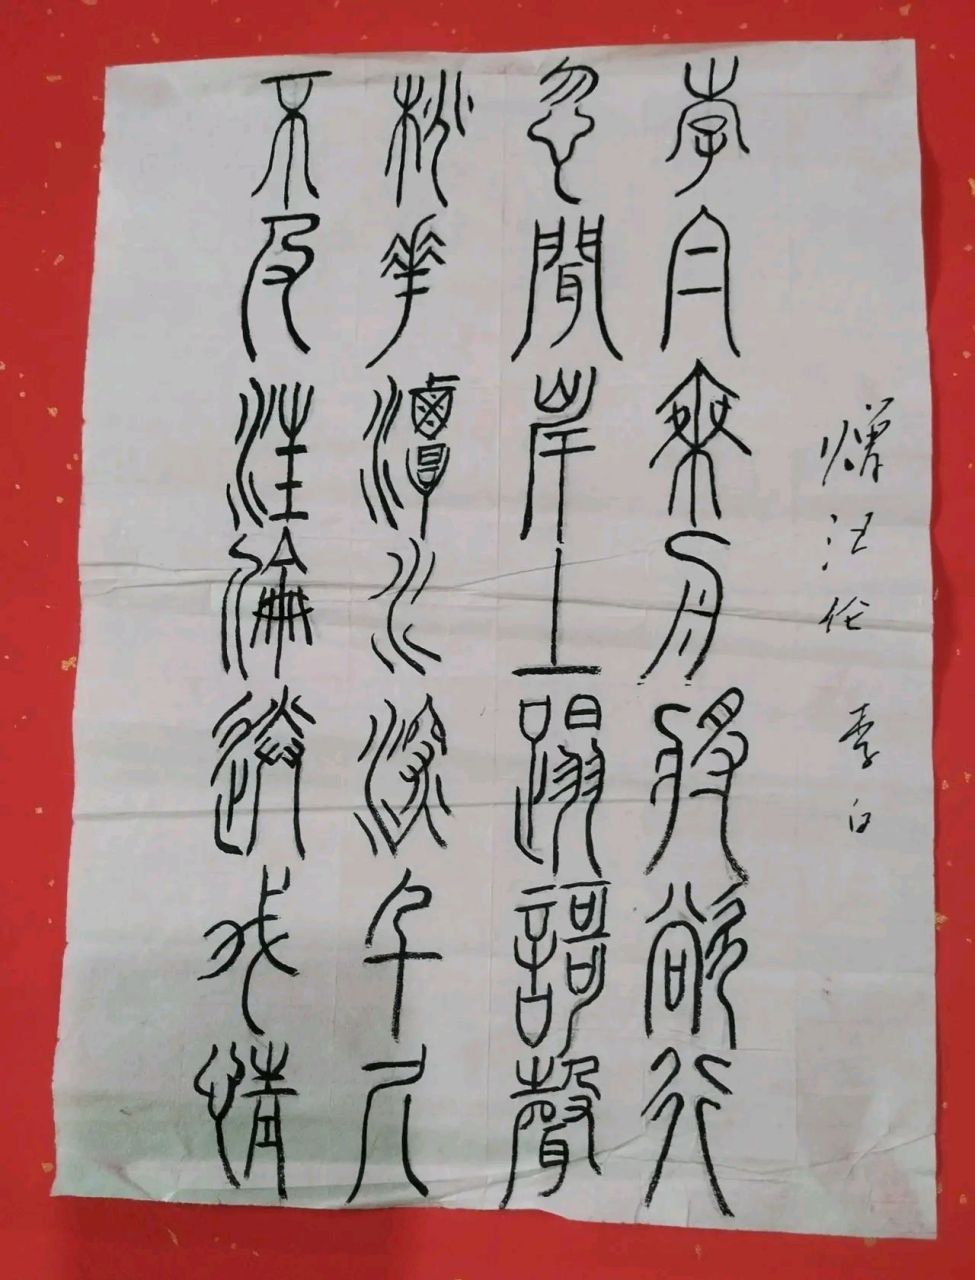 赠汪伦 李白
李白乘舟将欲行
忽聞岸上蹋謌聲
桃花潭水深千尺
不及汪倫送我情